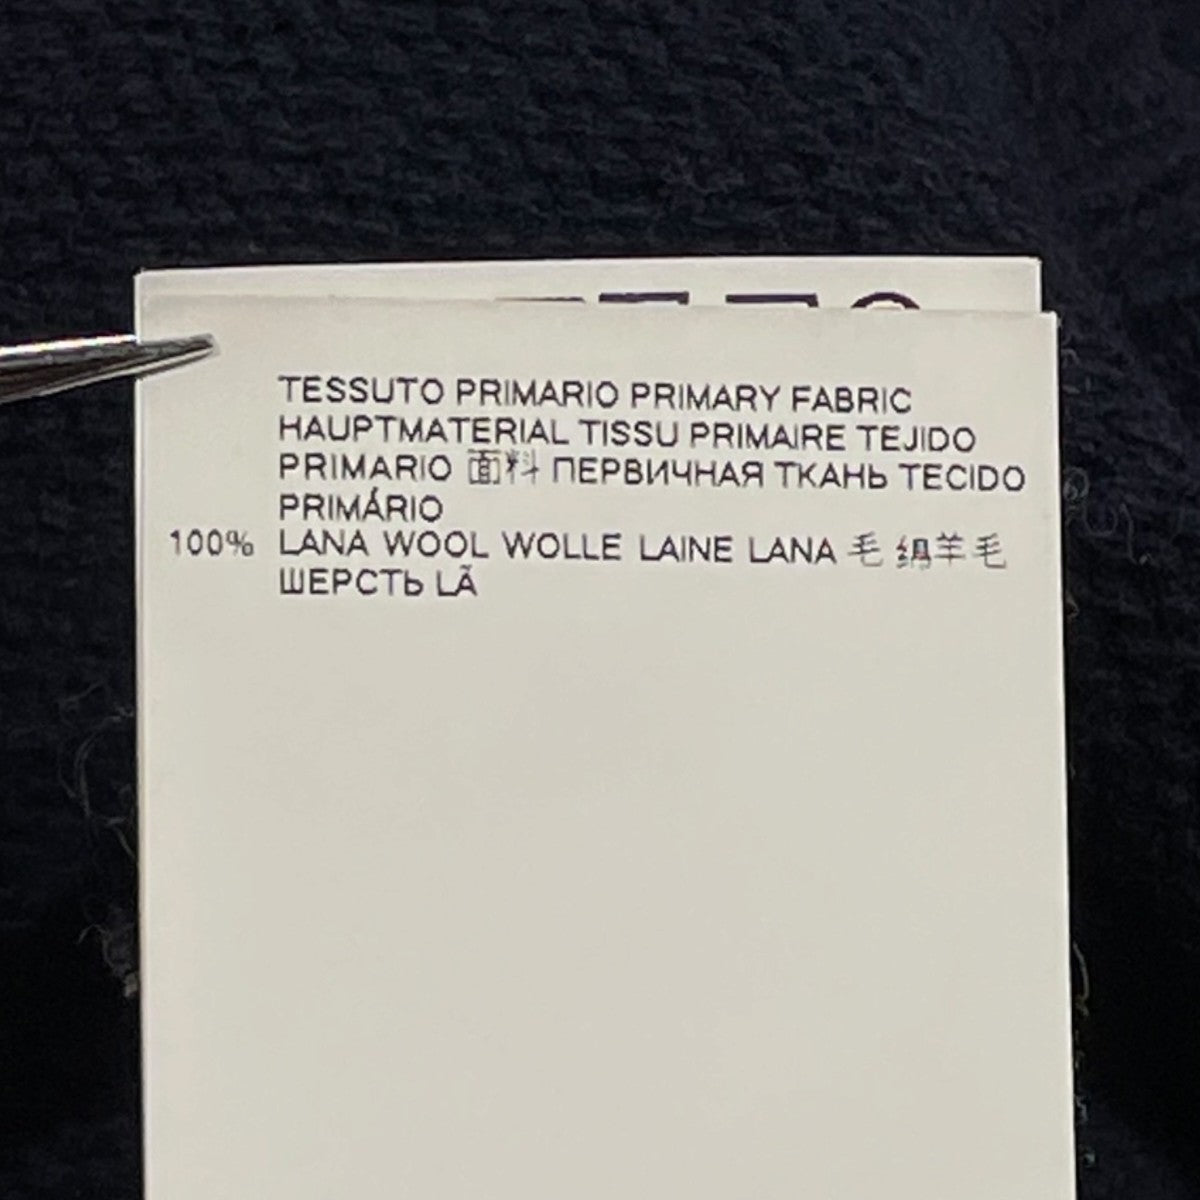 TESSUTO PRIMARIO PRIMARY FABRIC
HAUPTMATERIAL TISSU PRIMAIRE TEJIDO
PRIMARIO 面料 ПЕРВИЧНАЯ ТКАНЬ TECIDO
PRIMÁRIO
100% LANA WOOL WOLLE LAINE LANA 毛 绵羊毛
ШЕРСТЬ LÃ